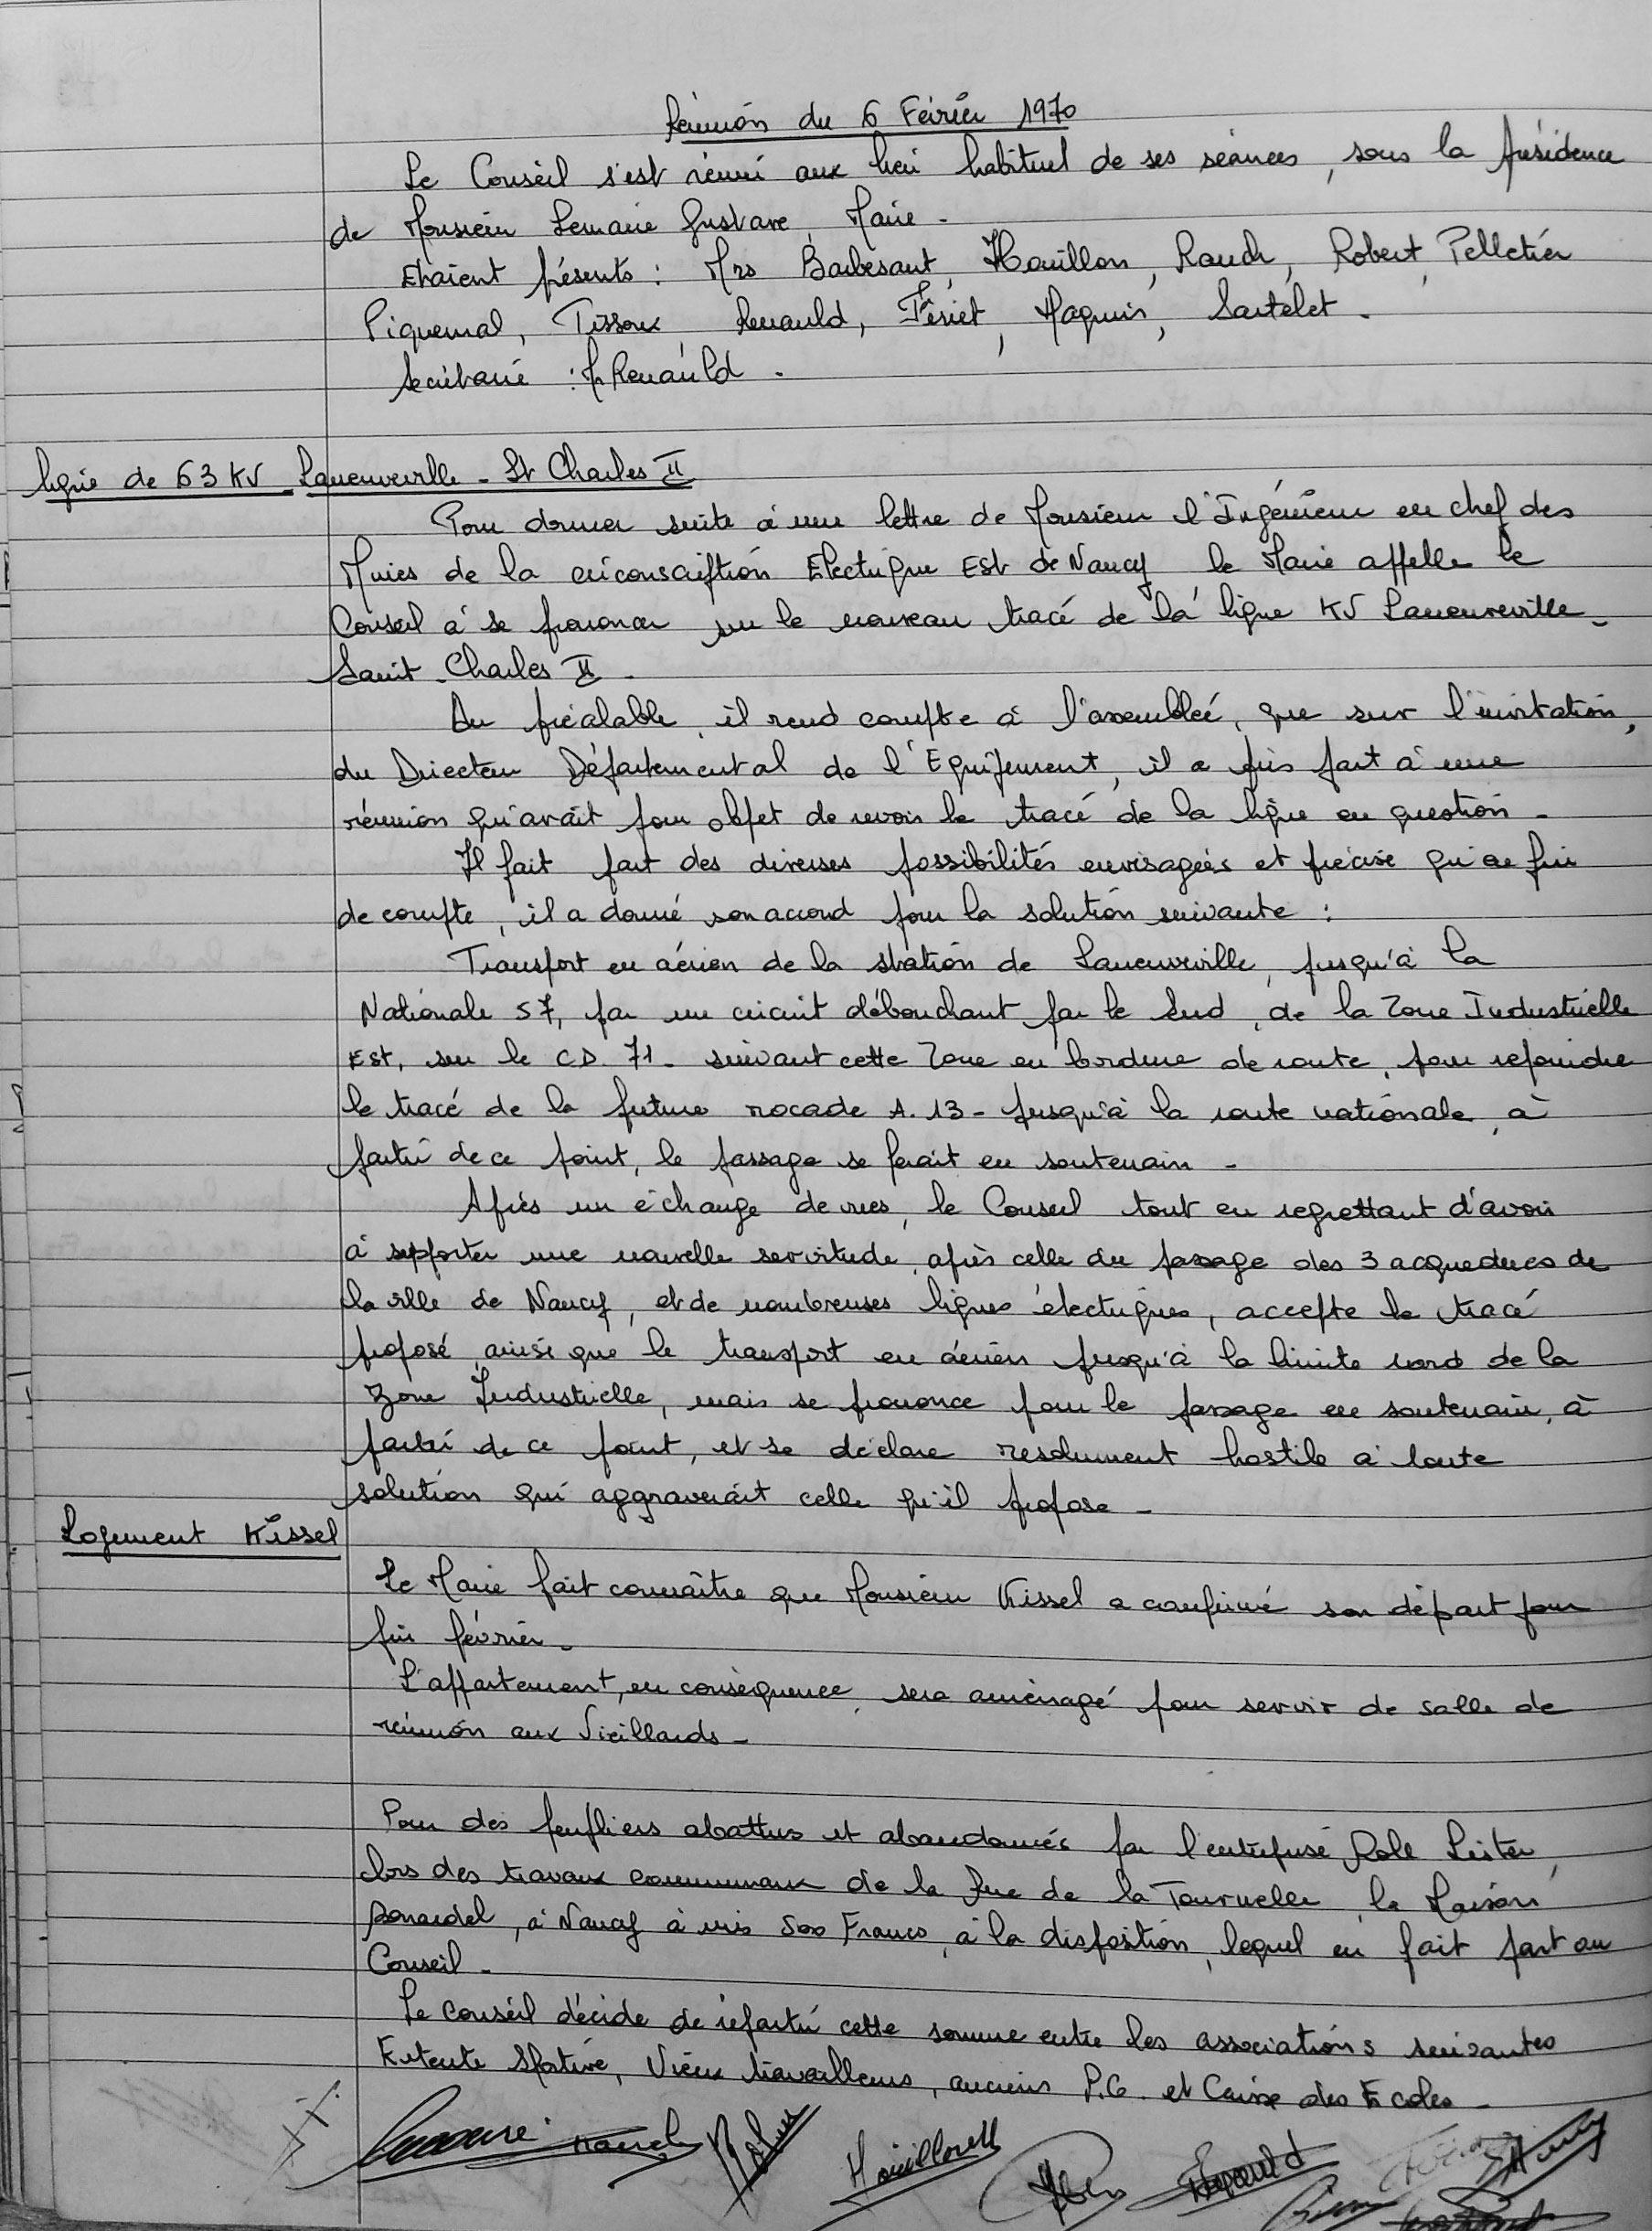 Réunion du 6 Février 1970
Le Conseil s'est réuni aux lieu habituel de ses séances, sous la présidence
de Monsieur Lemaire Gustave, Maire -
Etaient présents : Mrs Barbesant, Houillon, Rauch, Robert, Pelletier
Piquemal, Tissoux, Renauld, Fériet, Maquin, Sartelet.
Secrétaire : M Renauld.
ligne de 63 KV - Laneuveville - St Charles II
Pour donner suite à une lettre de Monsieur l'Ingénieur en chef des
Mines de la circonscription Electrique Est de Nancy le Maire appelle le
Conseil à se prononcer sur le nouveau tracé de la ligne KV Laneuveville -
Saint-Charles II -
Au préalable, il rend compte à l'assemblée, que sur l'invitation,
du Directeur Départemental de l'Equipement, il a pris part à une
réunion qu'avait pour objet de revoir le tracé de la ligne en question -
Il fait part des diverses possibilités envisagées et précise qu'en fin
de compte, il a donné son accord pour la solution suivante :
Transport en aérien de la station de Laneuveville, jusqu'à la
Nationale 57, par un circuit débouchant par le Sud, de la Zone Industrielle
Est, sur le CD. 71 - suivant cette Zone en bordure de route, pour rejoindre
le tracé de la future rocade A. 13 - jusqu'à la route nationale, à
partir de ce point, le passage se ferait en souterrain -
Après un échange de vues, le Conseil tout en regrettant d'avoir
à supporter une nouvelle servitude, après celle du passage des 3 acqueducs de
la ville de Nancy, et de nombreuses lignes électriques, accepte le tracé
proposé ainsi que le transport en aérien jusqu'à la limite nord de la
Zone Industrielle, mais se prononce pour le passage en souterrain, à
partir de ce point, et se déclare resolument hostile à toute
solution qui aggraverait celle qu'il propose -
Logement Kissel
Le Maire fait connaître que Monsieur Kissel a confirmé son départ pour
fin février -
L'appartement, en conséquence, sera aménagé pour servir de salle de
réunion aux Vieillards -
Pour des peupliers abattus et abandonnés par l'entreprise Role Lister,
lors des travaux communaux de la Rue de la Tournelle, la Maison
, à Nancy à mis 500 Francs, à la disposition, lequel en fait part au
Conseil -
Le Conseil décide de répartir cette somme entre les associations suivantes
Entente Sportive, Vieux travailleurs, anciens P.G. et Caisse des Ecoles -
Houillon Renauld